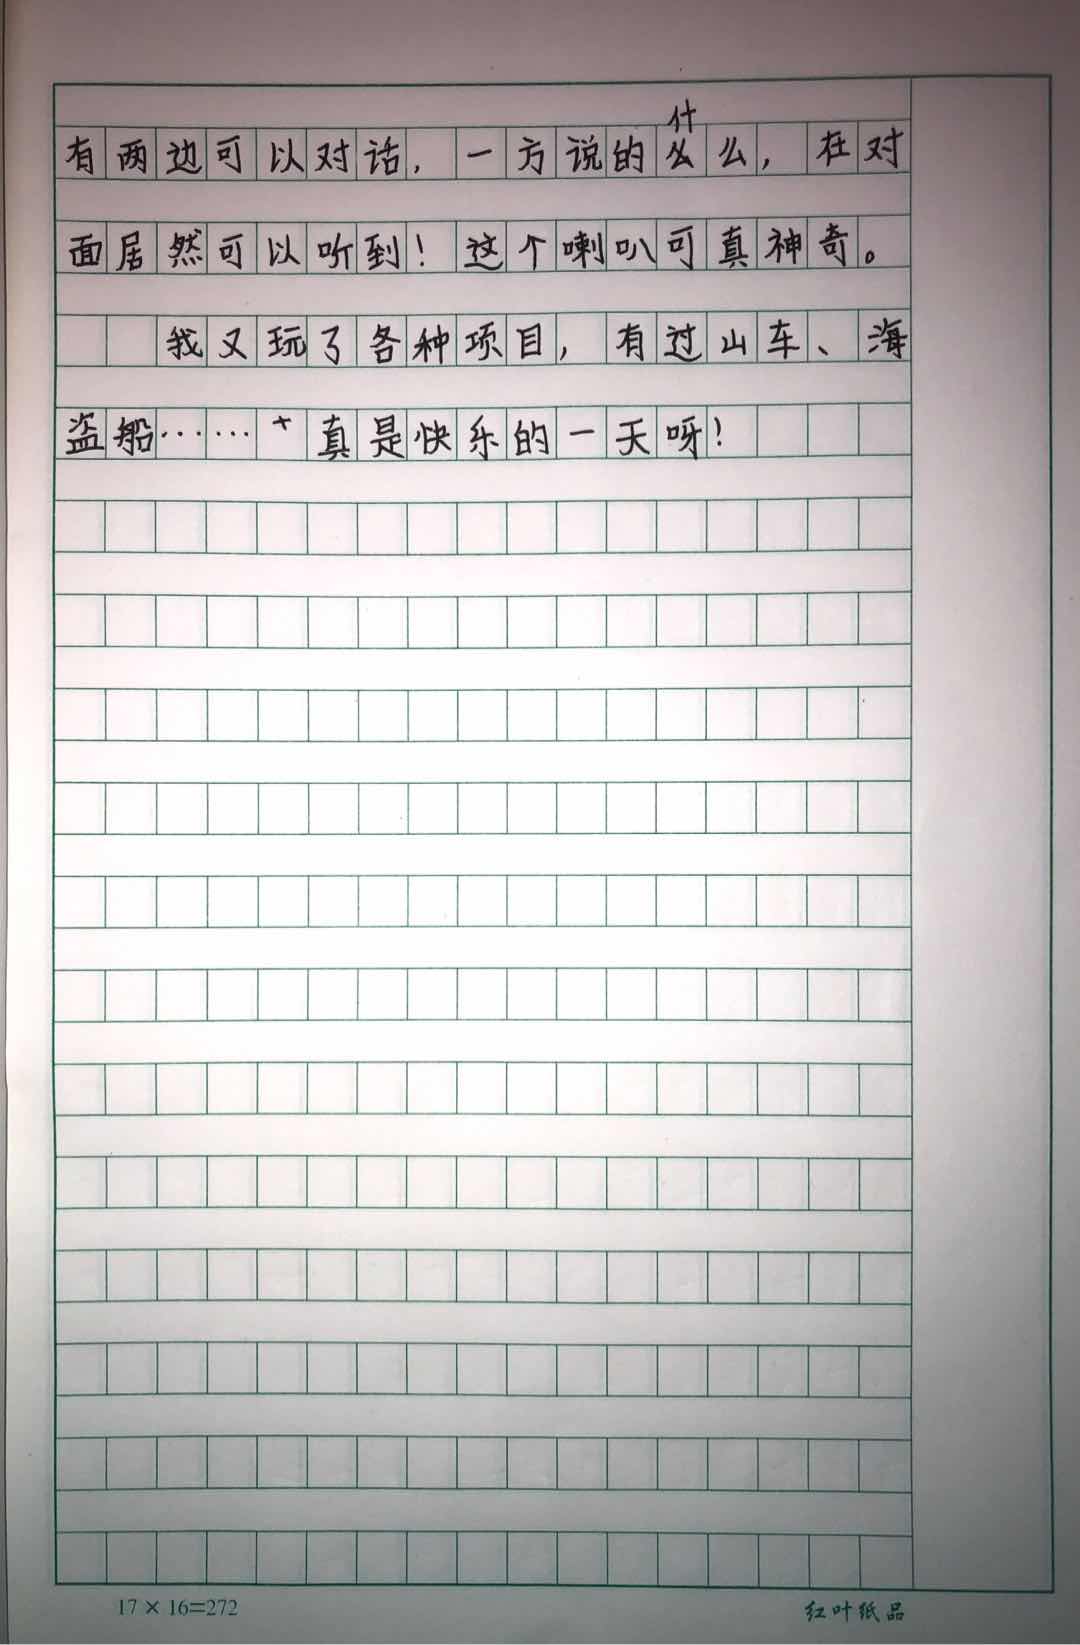 有两边可以对话，一方说的什么，在对
面居然可以听到！这个喇叭可真神奇。
我又玩了各种项目，有过山车、海
盗船……真是快乐的一天呀！
17×16=272
红叶纸品